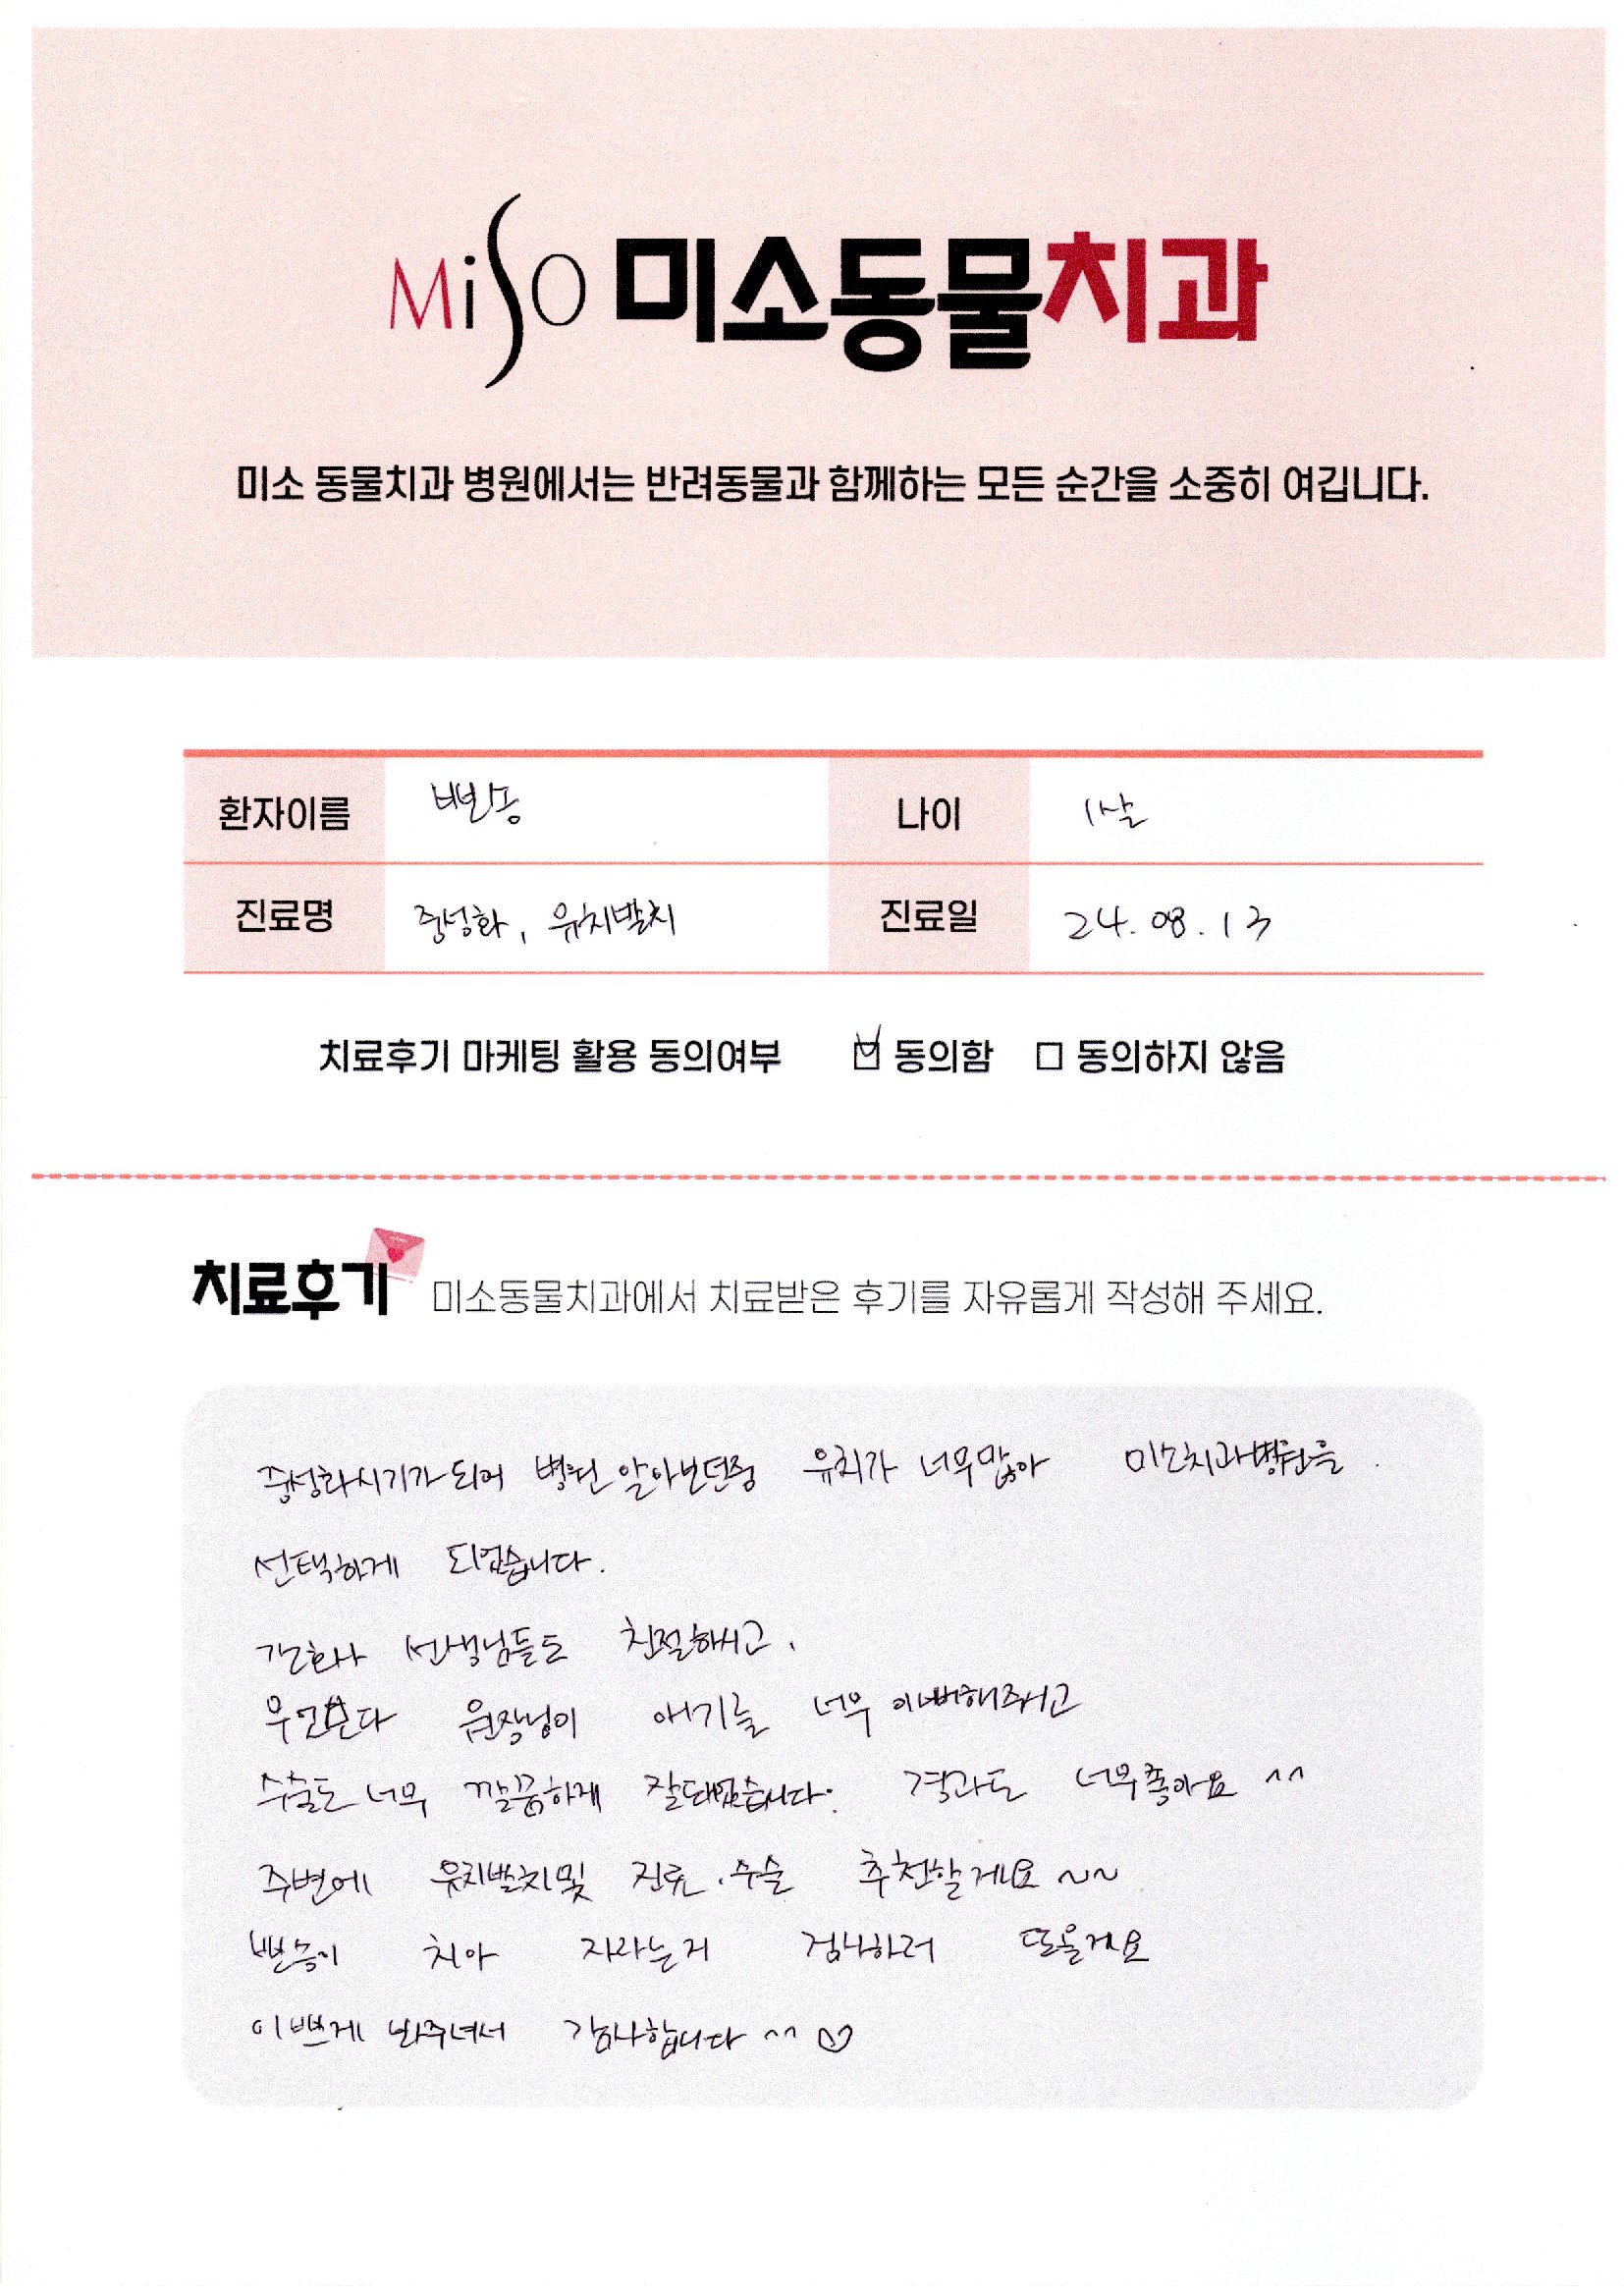 MiSO 미소동물치과
미소 동물치과 병원에서는 반려동물과 함께하는 모든 순간을 소중히 여깁니다.
환자이름 나이 1살
진료명 중성화, 유치발치 진료일 24. 08. 13
치료후기 마케팅 활용 동의여부 동의함 동의하지 않음
치료후기 미소동물치과에서 치료받은 후기를 자유롭게 작성해 주세요.
중성화시기가 되어 병원 알아보던중 유치가 너무많아 미소치과병원을
선택하게 되었습니다.
간호사 선생님들도 친절하시고.
무엇보다 원장님이 애기를 너무 이뻐해주시고
수술도 너무 깔끔하게 잘되었습니다. 경과도 너무좋아요 ^^
주변에 유치발치및 진료.수술 추천할게요 ~~
치아 자라는거 검사하러 또올게요
이쁘게 봐주셔서 감사합니다 ^^ ♡